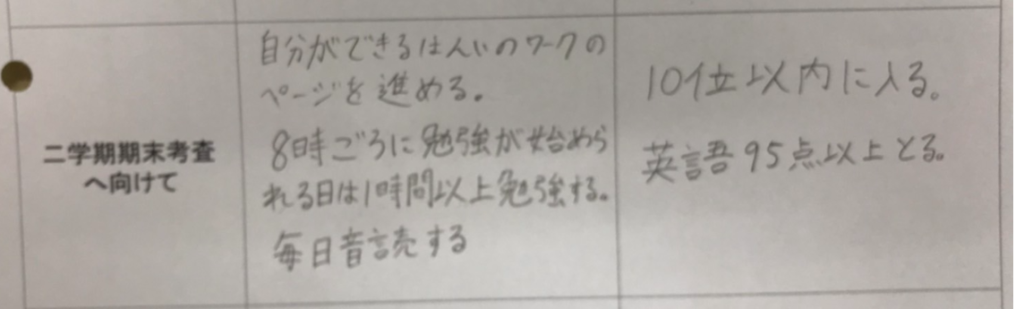 二学期期末考査
へ向けて
自分ができるはんいのワークの
ページを進める。
8時ごろに勉強が始めら
れる日は1時間以上勉強する。
毎日音読する
10位以内に入る。
英語95点以上とる。